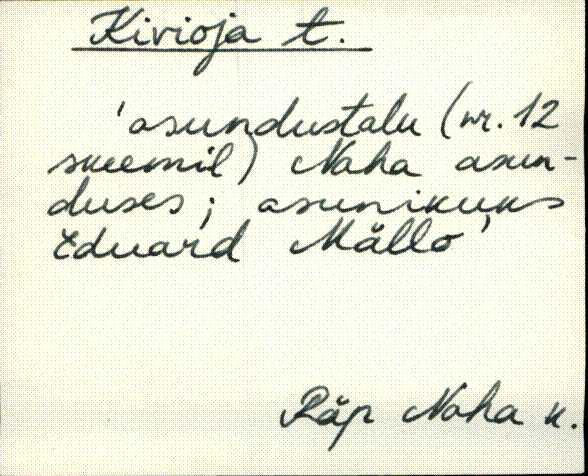 Kivioja t.
'asundustalu (nr. 12
skeemil) Naha asun-
duses; asunikuks
Eduard Mällo'
Räp Naha k.